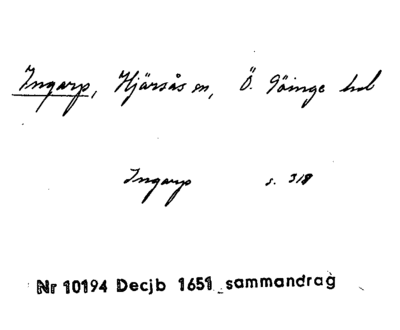 Ingarp, Hjärsås sn, Ö. Göinge hd
Ingarp s. 318
Nr 10194 Decjb 1651 sammandrag